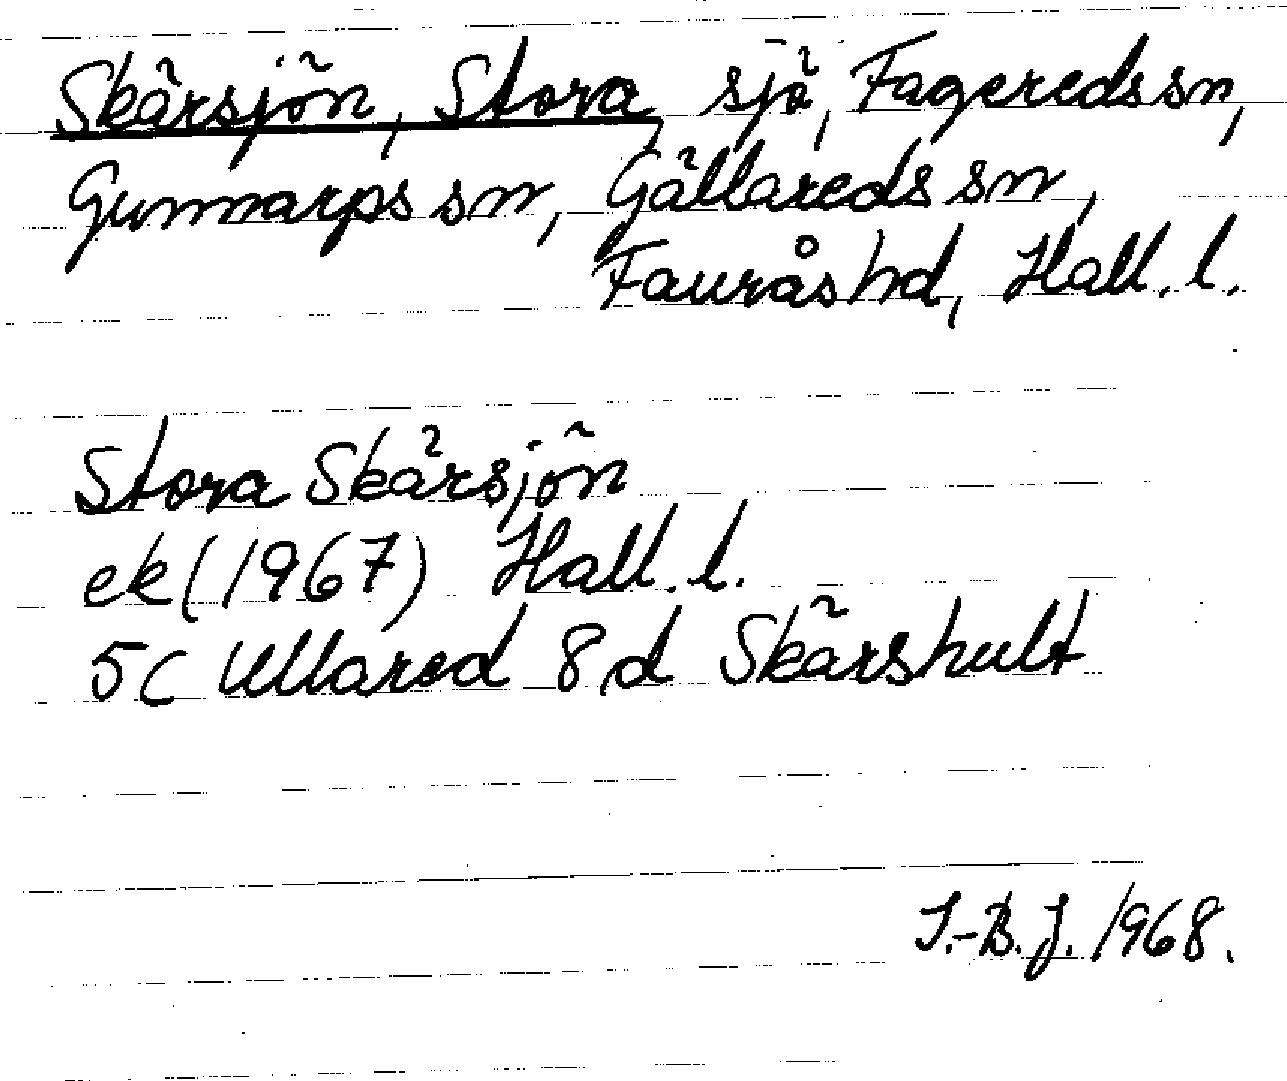 Skärsjön, Stora, sjö, Fagereds sn,
Gunnarps sn, Gällareds sn,
Fauråshd, Hall. l.
Stora Skärsjön
ek (1967) Hall. l.
5C Ullared 8d Skärshult
I.-B. J. 1968.